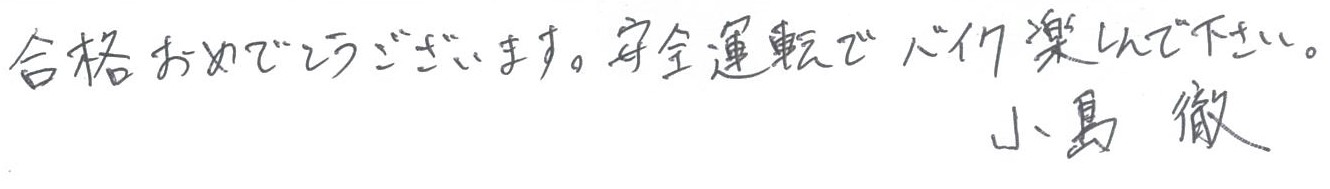 合格おめでとうございます。安全運転でバイク楽しんで下さい。
小島 徹